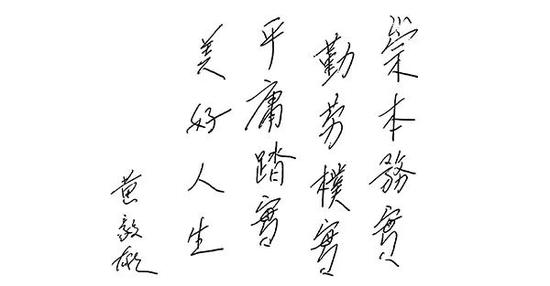 崇本務實
勤劳樸實
平庸踏實
美好人生
黄敦